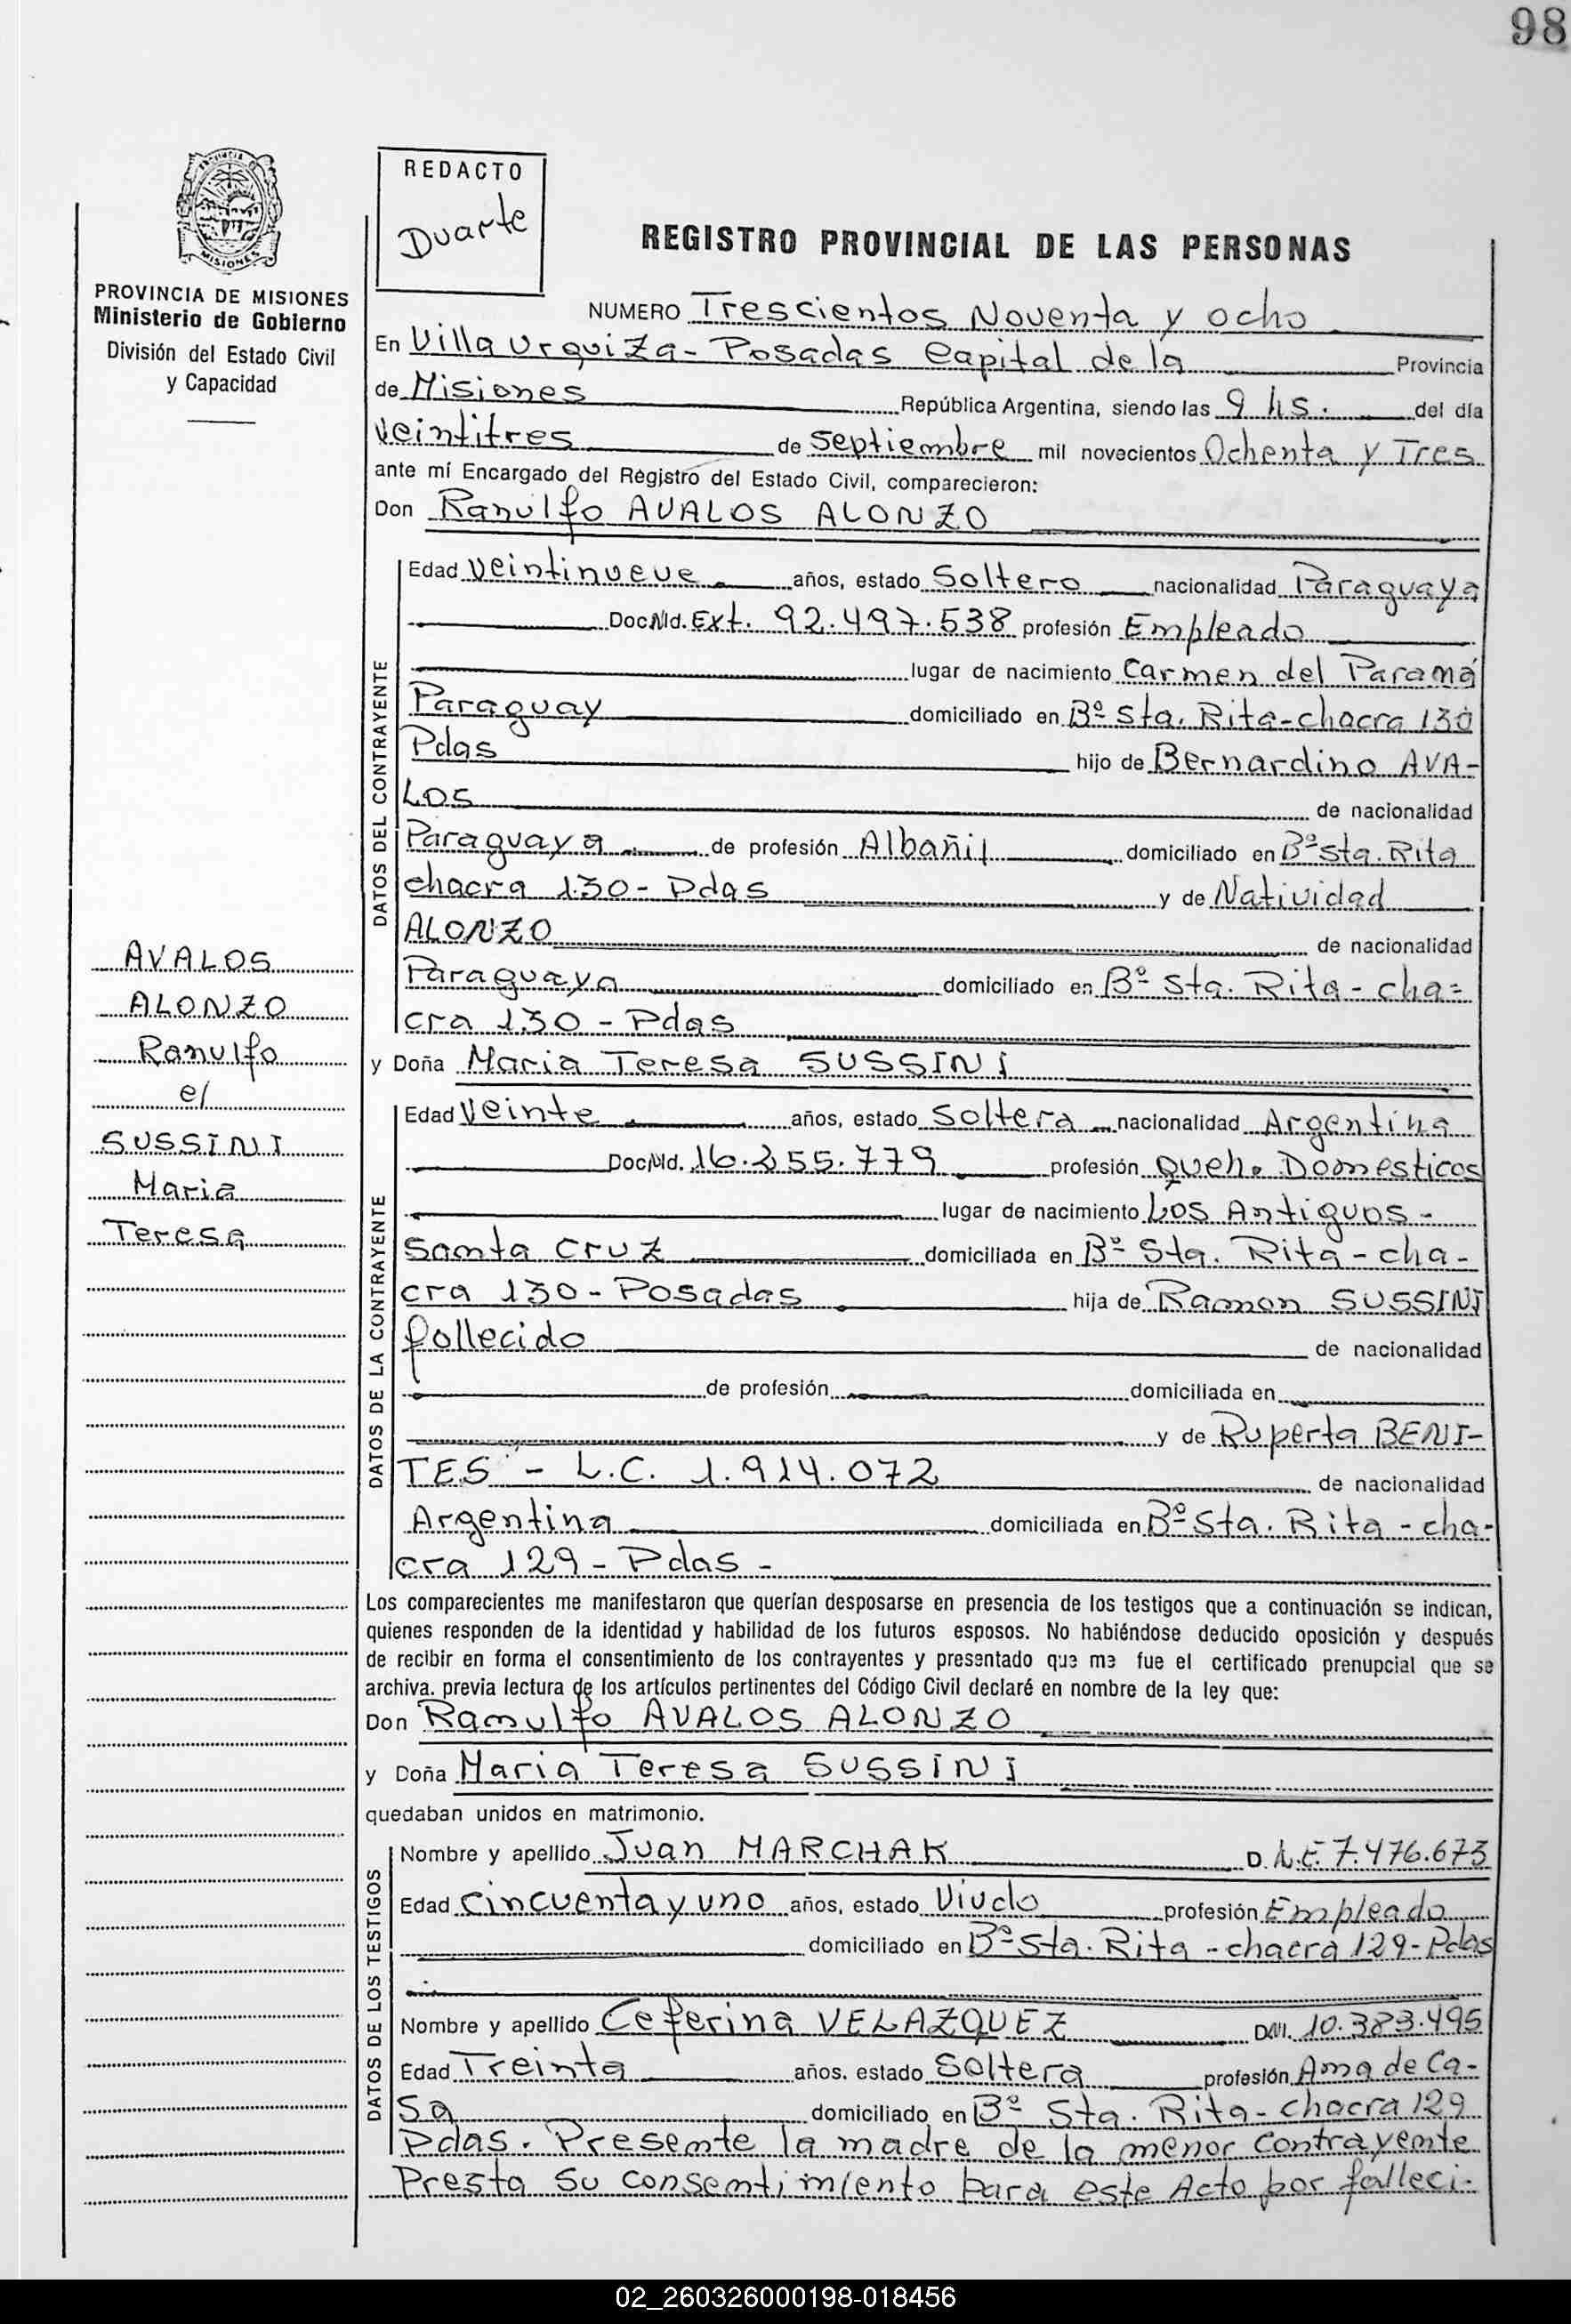 98
REDACTO
Duarte
MISIONES
PROVINCIA DE MISIONES
Ministerio de Gobierno
División del Estado Civil
y Capacidad
REGISTRO PROVINCIAL DE LAS PERSONAS
NUMERO Trescientos Noventa y ocho
En Villa Urquiza - Posadas Capital de la Provincia
de Misiones República Argentina, siendo las 9 hs. del día
veintitres de septiembre mil novecientos Ochenta y Tres
ante mí Encargado del Registro del Estado Civil, comparecieron:
Don Ranulfo AVALOS ALONZO
DATOS DEL CONTRAYENTE
Edad veintinueve años, estado Soltero nacionalidad Paraguaya
Doc. Nld. Ext. 92.497.538 profesión Empleado
lugar de nacimiento Carmen del Paraná
Paraguay domiciliado en Bº Sta. Rita - chacra 130
Pdas hijo de Bernardino AVA-
LOS de nacionalidad
Paraguaya de profesión Albañil domiciliado en Bº Sta. Rita
chacra 130 - Pdas y de Natividad
ALONZO de nacionalidad
Paraguaya domiciliado en Bº Sta. Rita - cha=
cra 130 - Pdas
y Doña Maria Teresa SUSSINI
DATOS DE LA CONTRAYENTE
Edad Veinte años, estado Soltera nacionalidad Argentina
Doc. Nld. 16.255.779 profesión Queh. Domesticos
lugar de nacimiento Los Antiguos -
Santa Cruz domiciliada en Bº Sta. Rita - cha -
cra 130 - Posadas hija de Ramon SUSSINI
fallecido de nacionalidad
de profesión domiciliada en
y de Ruperta BENI-
TES - L.C. 1.914.072 de nacionalidad
Argentina domiciliada en Bº Sta. Rita - cha-
cra 129 - Pdas -
AVALOS
ALONZO
Ranulfo
c/
SUSSINI
Maria
Teresa
Los comparecientes me manifestaron que querían desposarse en presencia de los testigos que a continuación se indican,
quienes responden de la identidad y habilidad de los futuros esposos. No habiéndose deducido oposición y después
de recibir en forma el consentimiento de los contrayentes y presentado que me fue el certificado prenupcial que se
archiva. previa lectura de los artículos pertinentes del Código Civil declaré en nombre de la ley que:
Don Ranulfo AVALOS ALONZO
y Doña Maria Teresa SUSSINI
quedaban unidos en matrimonio.
DATOS DE LOS TESTIGOS
Nombre y apellido Juan MARCHAK D. L.E. 7.476.673
Edad cincuenta y uno años, estado Viudo profesión Empleado
domiciliado en Bº Sta. Rita - chacra 129 - Pdas
Nombre y apellido Ceferina VELAZQUEZ DNI. 10.383.495
Edad Treinta años. estado Soltera profesión Ama de Ca-
sa domiciliado en Bº Sta. Rita - chacra 129
Pdas. Presente la madre de la menor contrayente
Presta su consentimiento para este Acto por falleci-
02_260326000198-018456